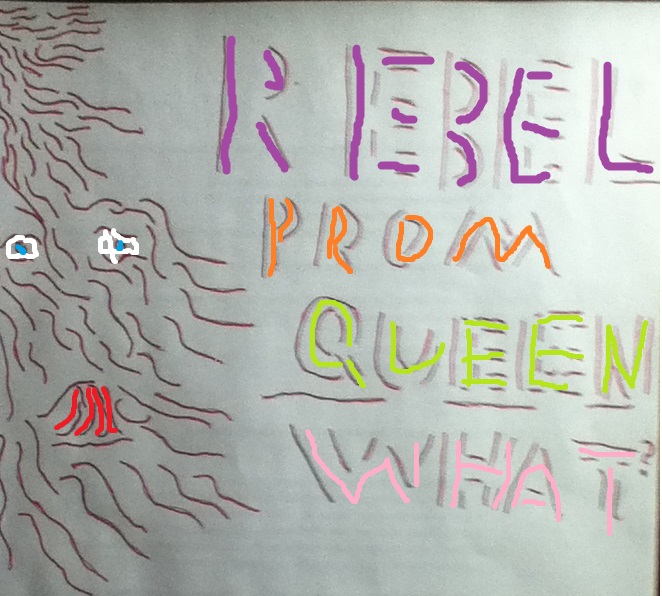 REBEL
PROM
QUEEN
WHAT?